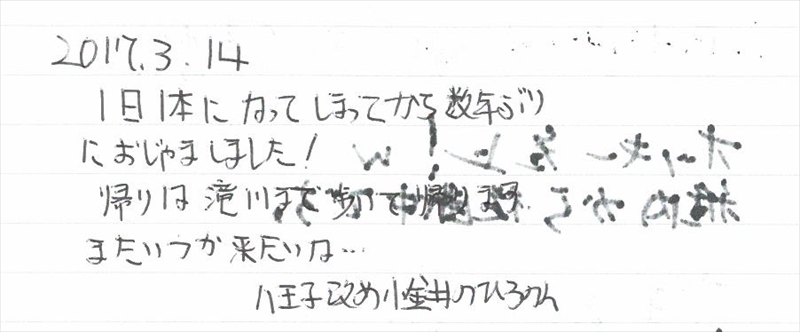 2017.3.14
1日1本になってしまってから数年ぶり
におじゃましました!
帰りは滝川まで歩いて帰ります
またいつか来たいな…
八王子改め小金井のひろみん